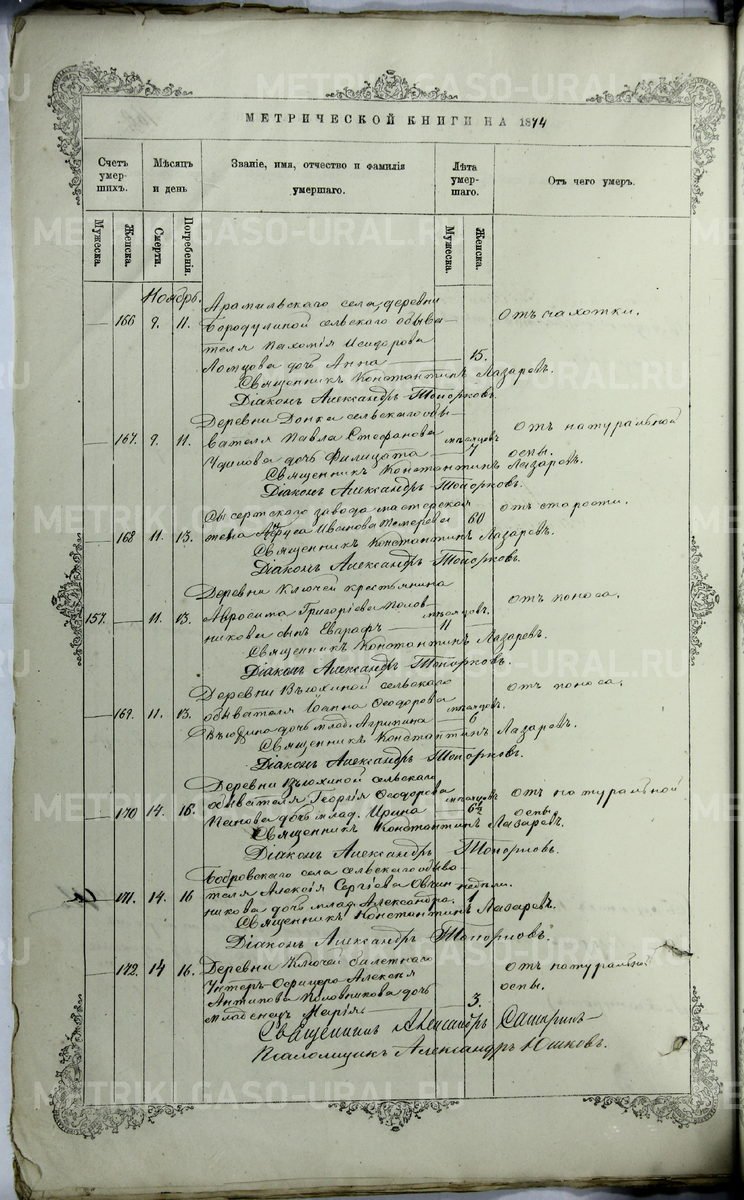 МЕТРИЧЕСКОЙ КНИГИ НА 1874
Счетъ умер- шихъ.
Мѣсяцъ и день
Званіе, имя, отчество и фамилія умершаго.
Лѣта умер- шаго.
Отъ чего умеръ.
Мужеска.
Женска.
Смерти.
Погребенія.
Мужеска.
Женска.
Ноябрь.
Арамильскаго села, деревни
166 9. 11. Бородулиной сельскаго обыва- Отъ чахотки.
теля Пахомія Исидорова
Ломцова дочь Анна 15.
Священникъ Константинъ Лазаревъ.
Діаконъ Александръ Топорковъ.
Деревни сельскаго обы-
167. 9. 11. вателя Павла Стефанова мѣсяцовъ Отъ натуральной
дочь Филицата 7 оспы.
Священникъ Константинъ Лазаревъ.
Діаконъ Александръ Топорковъ.
Сысертскаго завода мастерская Отъ старости.
168 11. 13. жена Иванова 60
Священникъ Константинъ Лазаревъ.
Діаконъ Александръ Топорковъ.
Деревни Ключей крестьянина
157. 11. 13. Авросима Григоріева Полов- мѣсяцовъ. Отъ поноса.
никова сынъ Евграфъ 11
Священникъ Константинъ Лазаревъ.
Діаконъ Александръ Топорковъ.
Деревни Вьюхиной сельскаго Отъ поноса.
169. 11. 13. обывателя Іоанна Ѳеодорова мѣсяцовъ.
Вьюхина дочь млад. Агрипина 6
Священникъ Константинъ Лазаревъ.
Діаконъ Александръ Топорковъ.
Деревни Вьюхиной сельскаго
170 14. 16. обывателя Георгія Ѳеодорова мѣсяцовъ Отъ натуральной
Панова дочь млад. Ирина 6½ оспы.
Священникъ Константинъ Лазаревъ.
Діаконъ Александръ Топорковъ.
Бобровскаго села сельскаго обыва
171. 14. 16 теля Алексія Сергіева Овчин недѣли.
никова дочь млад. Александра. 1
Священникъ Константинъ Лазаревъ.
Діаконъ Александръ Топорковъ.
172. 14 16. Деревни Ключей билетнаго Отъ натуральной
Унтеръ-Офицера Алексея оспы.
Антипова Половникова дочь
младенец Марія 3.
Священникъ Александръ
Псаломщикъ Александръ Юшковъ.
METRIK.GASO-URAL.RU